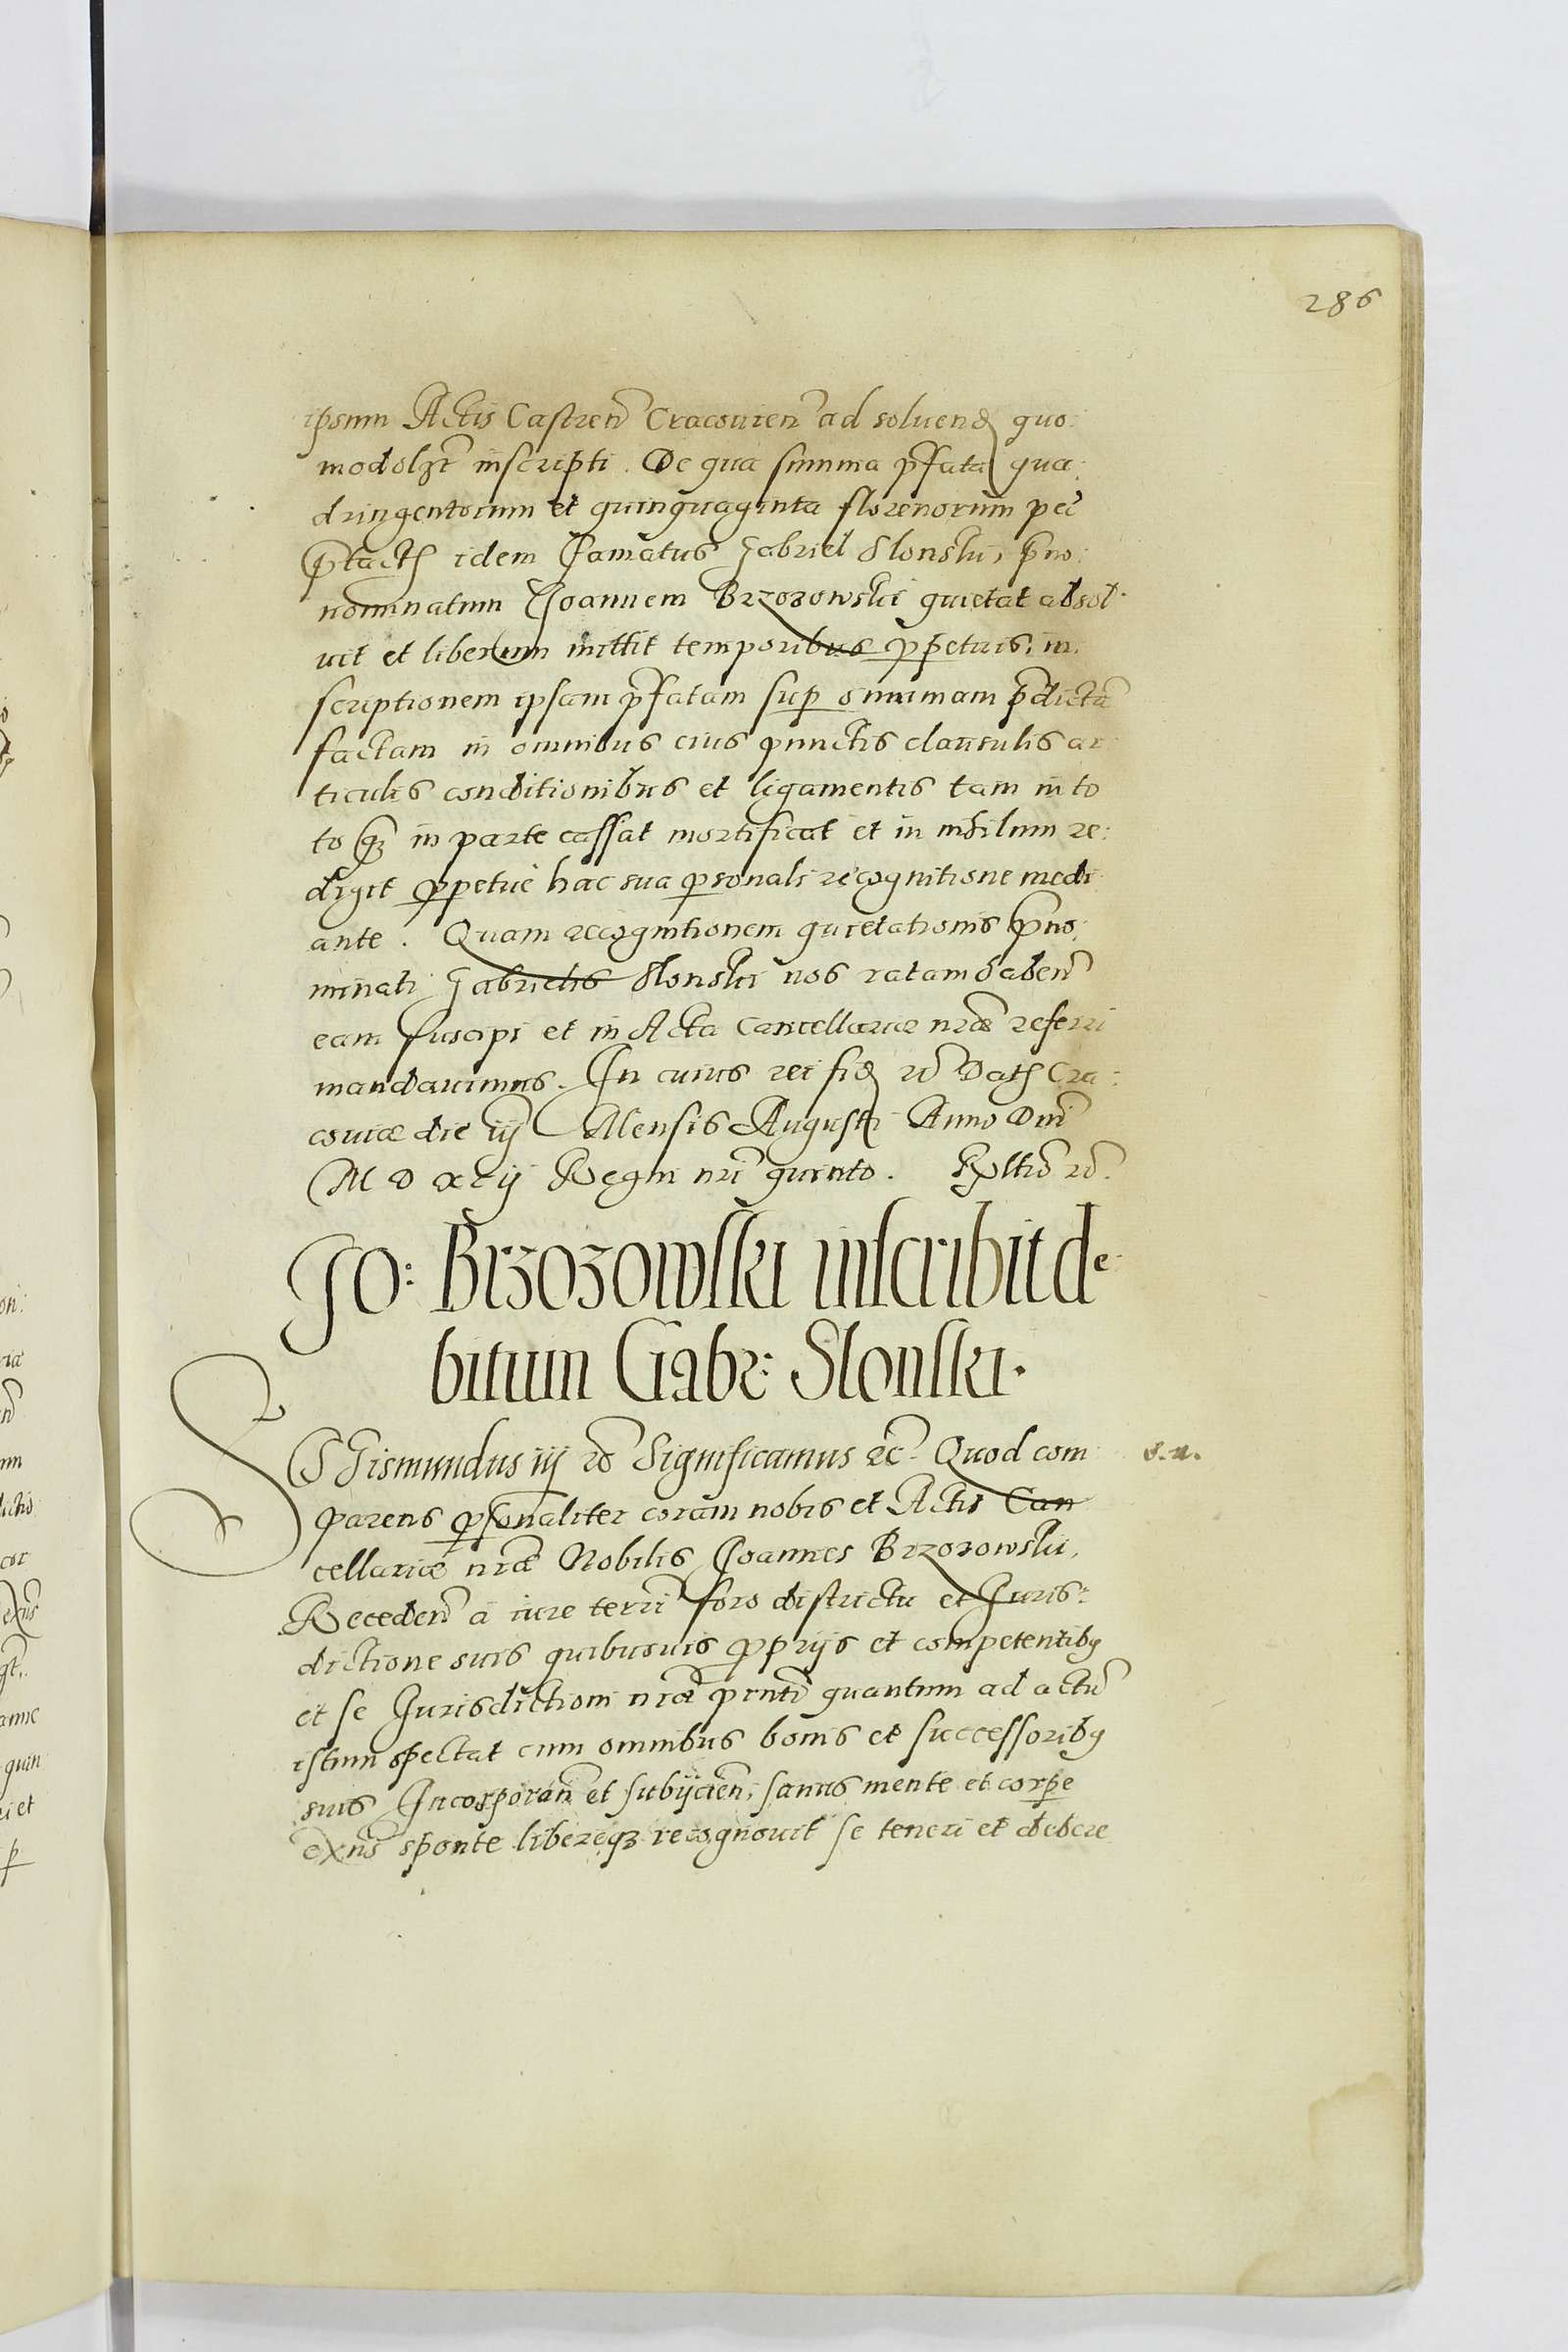 286
ipsum Actis Castren Cracouien ad soluend quo:
modolzt inscripti. De qua summa pfata qua:
dringentorum et quinquaginta florenorum pec
ptacts idem Famatus Gabriel Slonski, pno:
nominatum Joannem Brzozowski quietat absol:
uit et liberum mittit temporibus ppetuis, in:
scriptionem ipsam pfatam sup summam pdicta
factam in omnibus eius punctis clausulis ar
ticulis conditionibus et ligamentis tam in to
to qz in parte cassat mortificat et in nihilum re:
digit ppetue hac sua psonali recognitione medi
ante. Quam recognitionem quietationis pno:
minati Gabrielis Slonski nos ratam haben
eam suscipi et in Acta Cancellariæ nræ referri
mandauimus. In cuius rei fid rc Dats Cra:
couiæ die iij Mensis Augusti Anno Dni
M D XC ij Regni nri quinto. Rltio rc.
Jo: Brzozowski inscribit de:
bitum Gabr: Slonski.
SGismundus iij rc Significamus rc. Quod com s.n.
parens psonaliter coram nobis et Actis Can
cellariæ nræ Nobilis Joannes Brzozowski,
Receden a iure terri foro districtu et Juris:
dictione suis quibusuis pprijs et competentibq
et se Jurisdictioni nræ pnti quantum ad actu
istum spectat cum omnibus bonis et successoribq
suis Incorporan et subijcien, sanus mente et corpe
exns sponte libereqz recognouit se teneri et debere